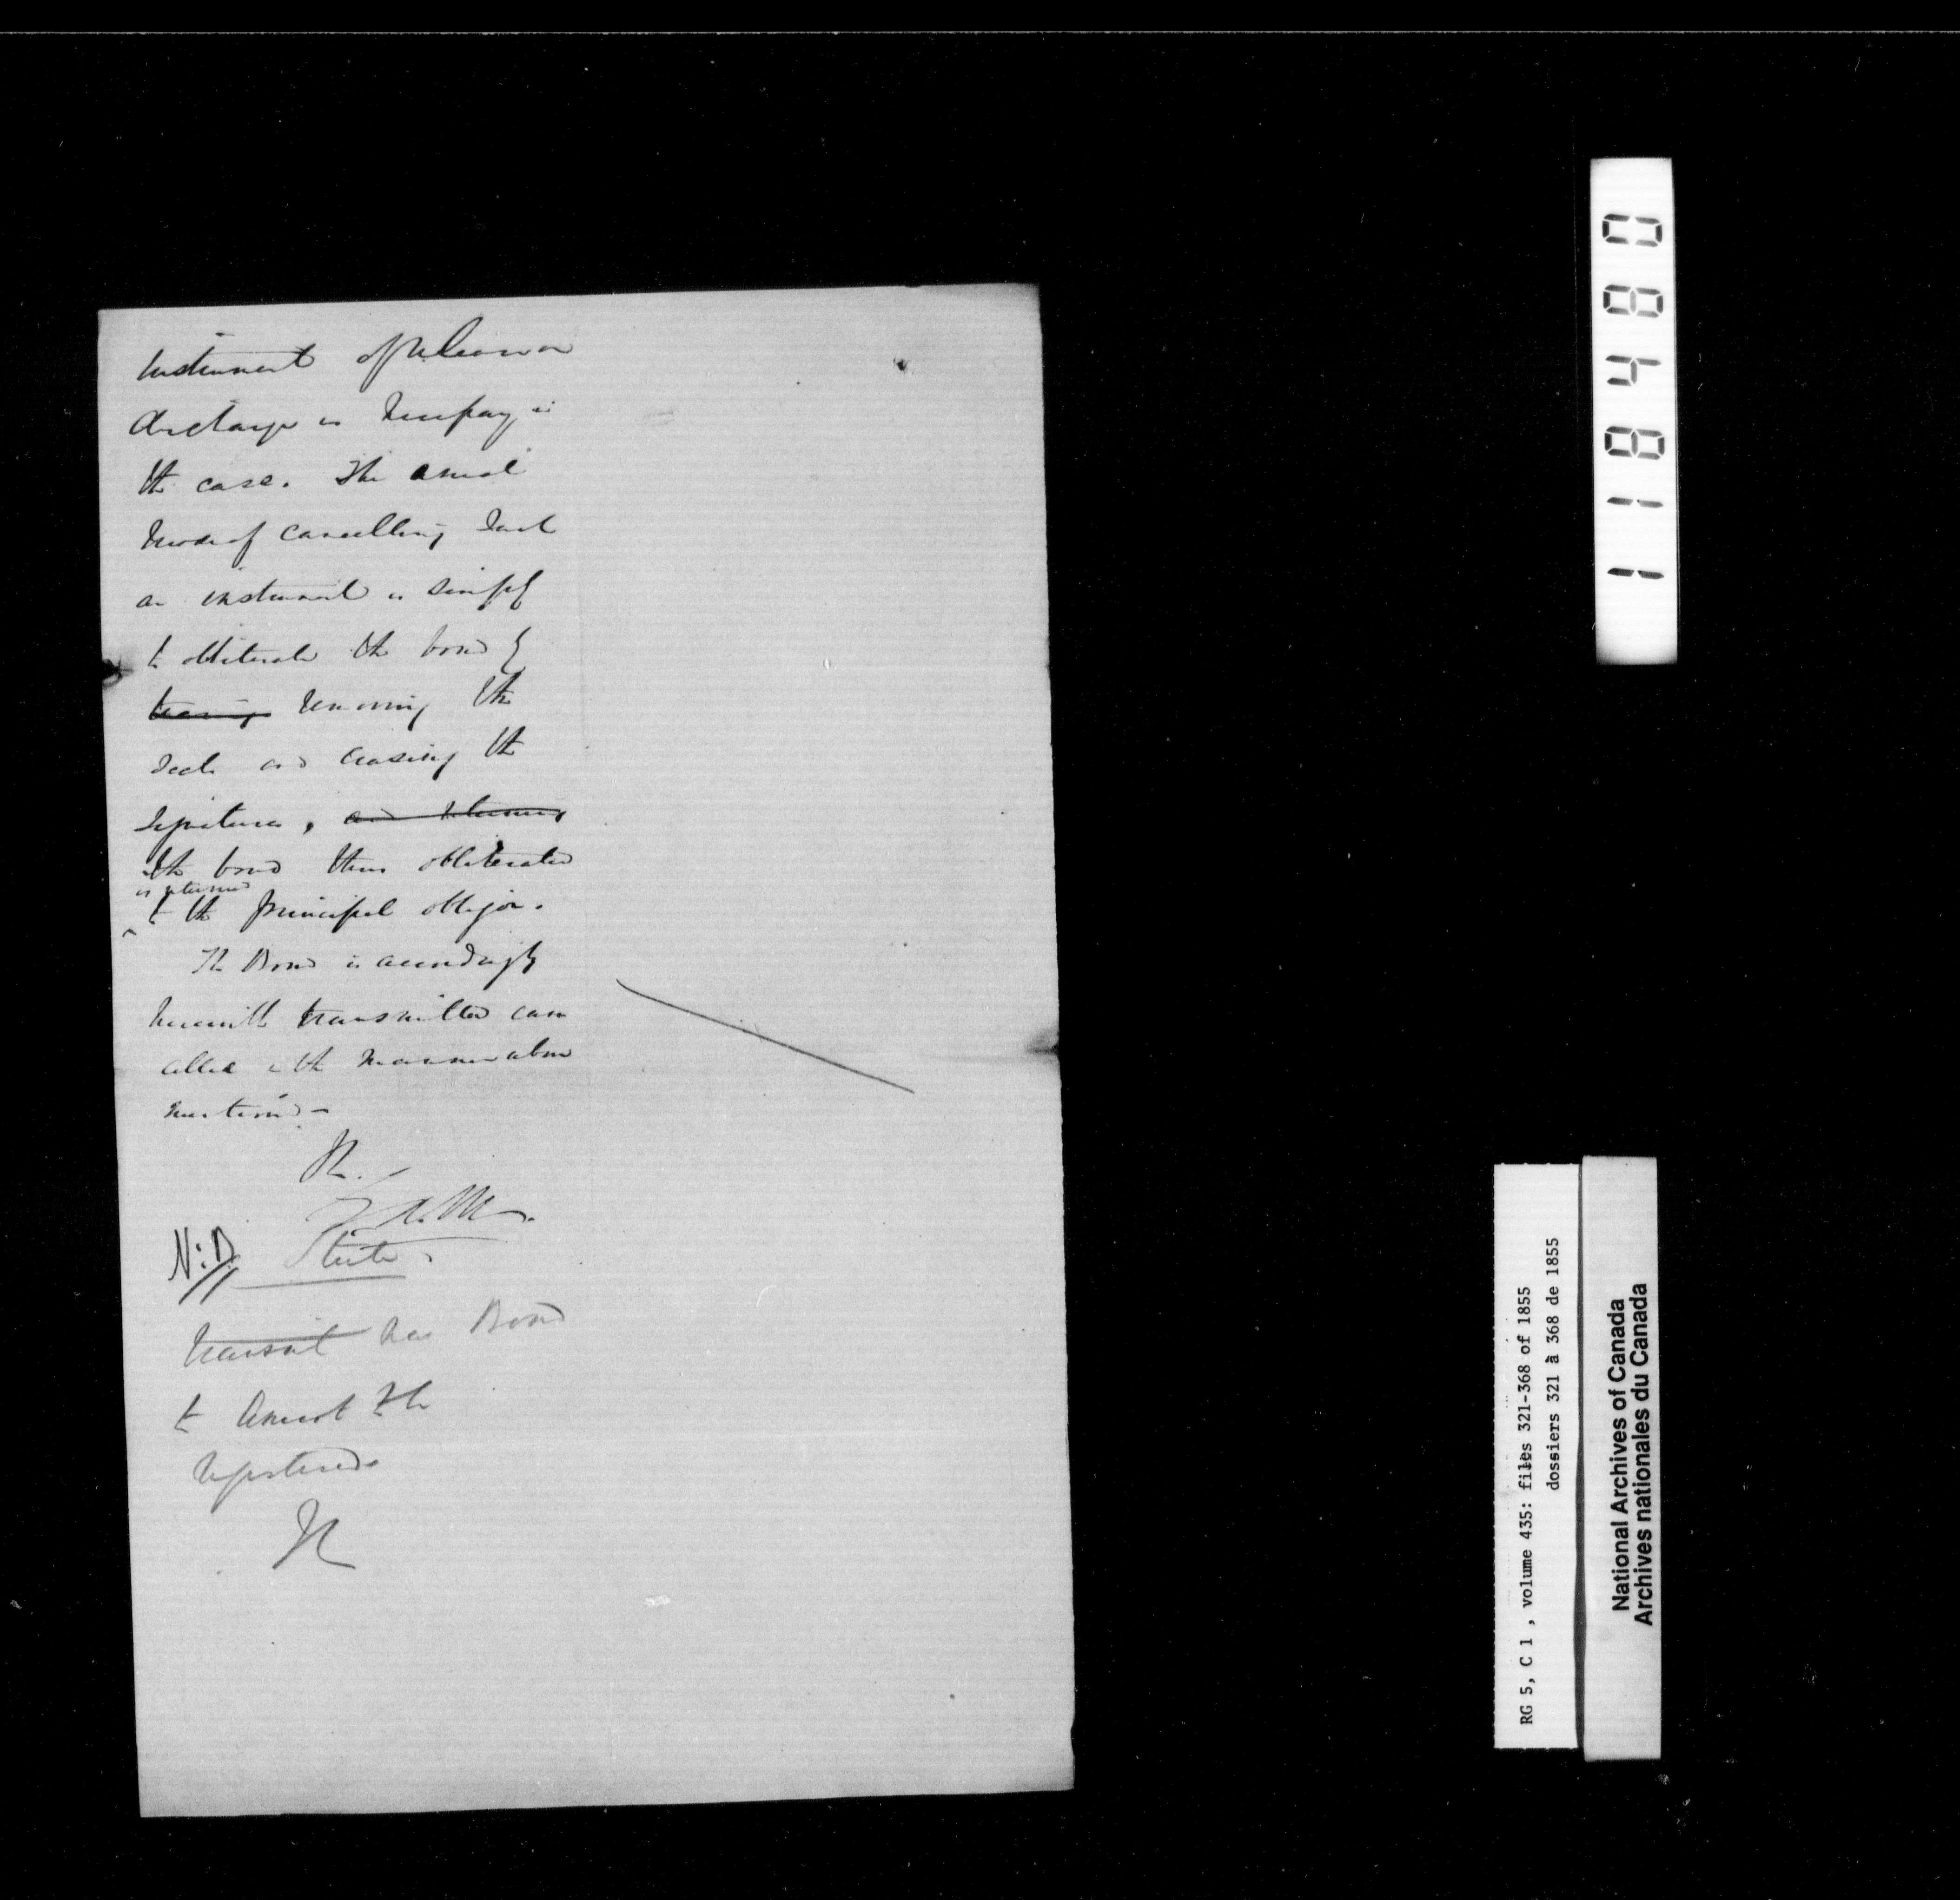 Instrument of release or
discharge is necessary in
the case. The usual
mode of cancelling such
an instrument is simply
to obliterate the bond by
tearing removing the
seals and erasing the
signatures, and returning
the bond thus obliterated
is returned
to the principal obligor.
The Bond is accordingly
herewith transmitted can
celled in the manner above
mentioned -
N:B
Transmit new Bond
to
registered
11 8480
RG 5, C 1 , volume 435: files 321-368 of 1855
dossiers 321 à 368 de 1855
National Archives of Canada
Archives nationales du Canada